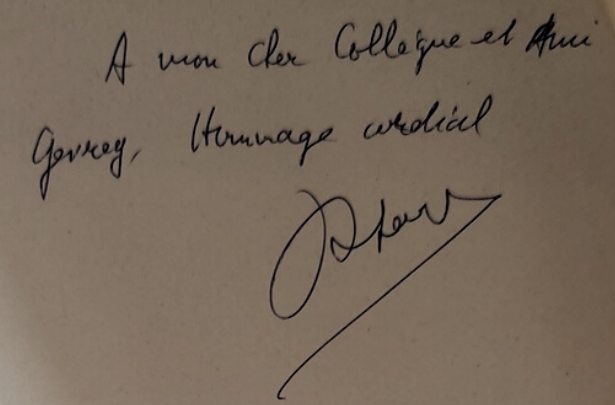 A mon cher Collègue et Ami
Gevrey, Hommage cordial